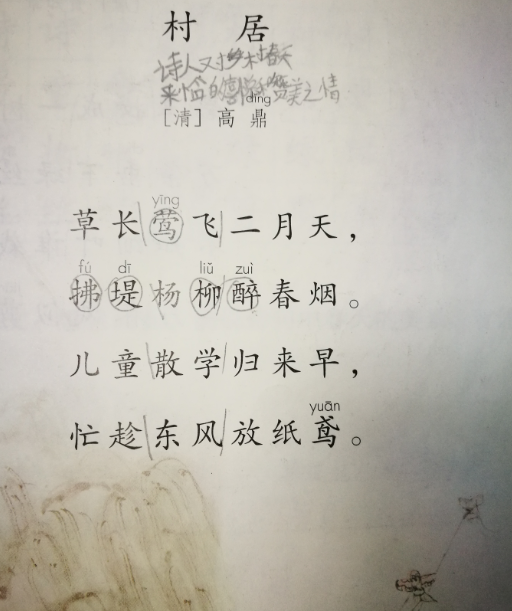 村居
诗人对乡村春天
来临的喜悦和赞美之情
dǐng
[清] 高鼎
yīng
草长莺飞二月天，
fú dī liǔ zuì
拂堤杨柳醉春烟。
儿童散学归来早，
yuān
忙趁东风放纸鸢。